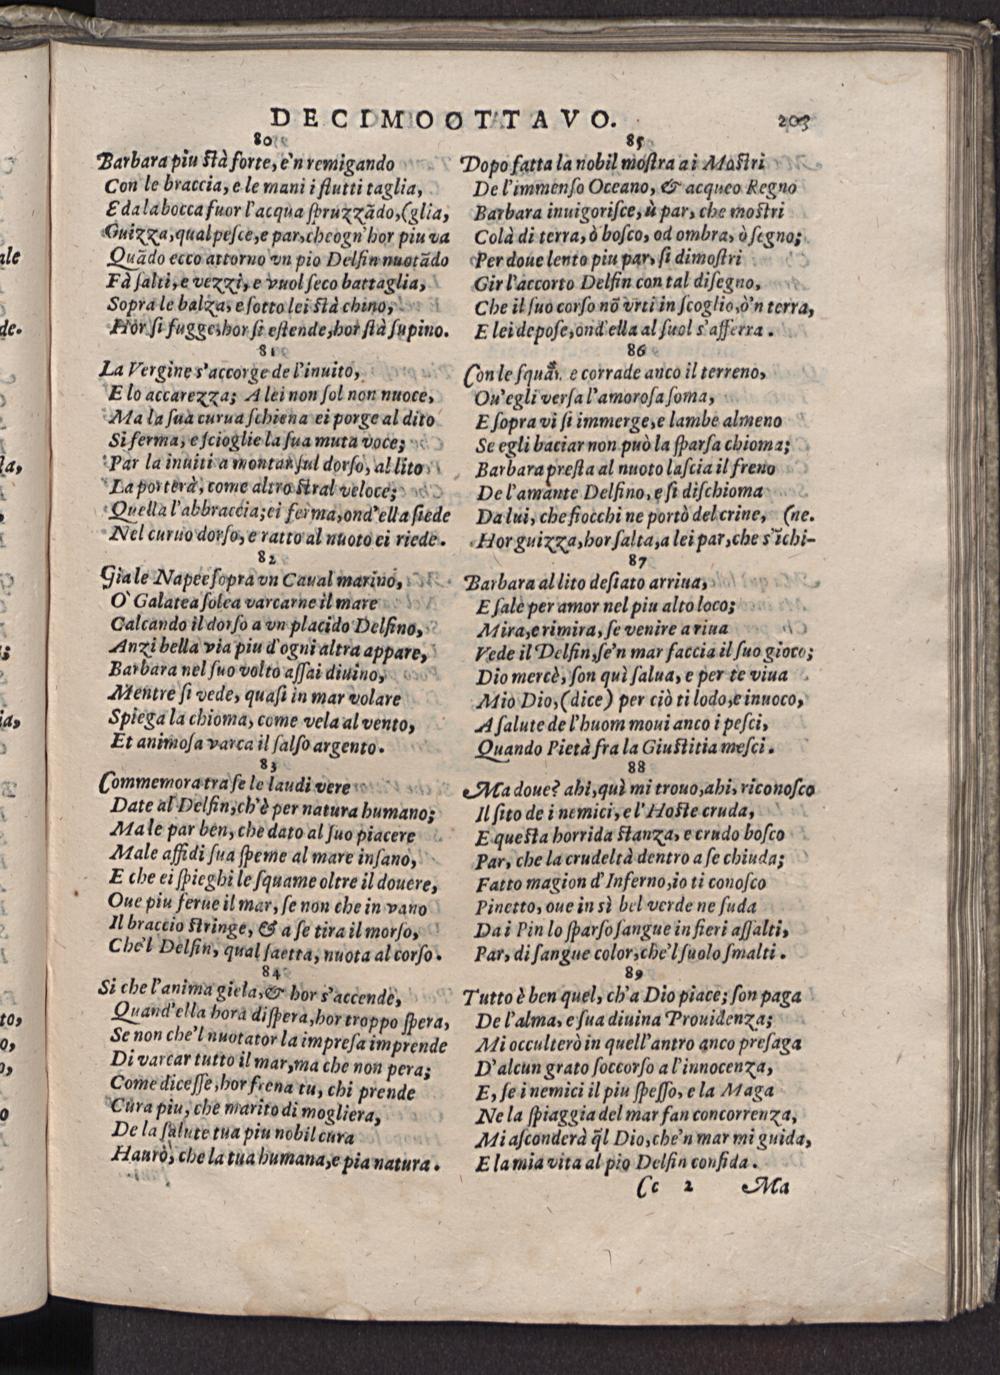 DECIMOOTTAVO. 203
80
Barbara piu ſtà forte, e'n remigando
Con le braccia, e le mani i flutti taglia,
E da la bocca fuor l'acqua ſpruzzãdo, (glia,
Guizza, qual peſce, e par, che ogn'hor piu va
Quãdo ecco attorno vn pio Delfin nuotãdo
Fà ſalti, e vezzi, e vuol ſeco battaglia,
Sopra le balza, e ſotto lei ſtà chino,
Hor ſi fugge, hor ſi eſtende, hor ſtà ſupino.
81
La Vergine s'accorge de l'inuito,
E lo accarezza; A lei non ſol non nuoce,
Ma la ſua curua ſchiena ei porge al dito
Si ferma, e ſcioglie la ſua muta voce;
Par la inuiti a montar ſul dorſo, al lito
La porterà, come altro ſtral veloce;
Quella l'abbraccia; ei ferma, ond'ella ſiede
Nel curuo dorſo, e ratto al nuoto ei riede.
82
Gia le Napee ſopra vn Caual marino,
O' Galatea ſolea varcarne il mare
Calcando il dorſo a vn placido Delfino,
Anzi bella via piu d'ogni altra appare,
Barbara nel ſuo volto aſſai diuino,
Mentre ſi vede, quaſi in mar volare
Spiega la chioma, come vela al vento,
Et animoſa varca il ſalſo argento.
83
Commemora tra ſe le laudi vere
Date al Delfin, ch'è per natura humano;
Ma le par ben, che dato al ſuo piacere
Male affidi ſua ſpeme al mare inſano,
E che ei ſpieghi le ſquame oltre il douere,
Oue piu ferue il mar, ſe non che in vano
Il braccio ſtringe, & a ſe tira il morſo,
Che'l Delfin, qual ſaetta, nuota al corſo.
84
Si che l'anima giela, & hor s'accende,
Quand'ella hora diſpera, hor troppo ſpera,
Se non che'l nuotator la impreſa imprende
Di varcar tutto il mar, ma che non pera;
Come diceſſe, hor frena tu, chi prende
Cura piu, che marito di mogliera,
De la ſalute tua piu nobil cura
Haurò, che la tua humana, e pia natura.
85
Dopo fatta la nobil moſtra ai Moſtri
De l'immenſo Oceano, & acqueo Regno
Barbara inuigoriſce, ù par, che moſtri
Colà di terra, ò boſco, od ombra, ò ſegno;
Per doue lento piu par, ſi dimoſtri
Gir l'accorto Delfin con tal diſegno,
Che il ſuo corſo nõ vrti in ſcoglio, ò'n terra,
E lei depoſe, ond'ella al ſuol s'afferra.
86
Con le e corrade anco il terreno,
Ou'egli verſa l'amoroſa ſoma,
E ſopra vi ſi immerge, e lambe almeno
Se egli baciar non può la ſparſa chioma;
Barbara preſta al nuoto laſcia il freno
De l'amante Delfino, e ſi diſchioma
Da lui, che fiocchi ne portò del crine, (ne.
Hor guizza, hor ſalta, a lei par, che s'ĩchi-
87
Barbara al lito deſiato arriua,
E ſale per amor nel piu alto loco;
Mira, e rimira, ſe venire a riua
Vede il Delfin, ſe'n mar faccia il ſuo gioco;
Dio mercè, ſon quì ſalua, e per te viua
Mio Dio, (dice) per ciò ti lodo, e inuoco,
A ſalute de l'huom moui anco i peſci,
Quando Pietà fra la Giuſtitia meſci.
88
Ma doue? ahi, quì mi trouo, ahi, riconoſco
Il ſito de i nemici, e l'Hoſte cruda,
E queſta horrida ſtanza, e crudo boſco
Par, che la crudeltà dentro a ſe chiuda;
Fatto magion d'Inferno, io ti conoſco
Pinetto, oue in sì bel verde ne ſuda
Da i Pin lo ſparſo ſangue in fieri aſſalti,
Par, di ſangue color, che'l ſuolo ſmalti.
89
Tutto è ben quel, ch'a Dio piace; ſon paga
De l'alma, e ſua diuina Prouidenza;
Mi occulterò in quell'antro anco preſaga
D'alcun grato ſoccorſo a l'innocenza,
E, ſe i nemici il piu ſpeſſo, e la Maga
Ne la ſpiaggia del mar fan concorrenza,
Mi aſconderà q̃l Dio, che'n mar mi guida,
E la mia vita al pio Delfin confida.
Cc 2 Ma